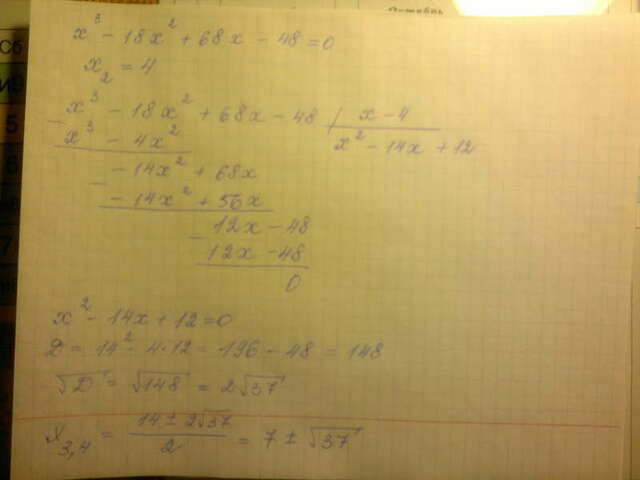 Октябрь
Сб
5
7
x³ - 18x² + 68x - 48 = 0
x₂ = 4
x³ - 18x² + 68x - 48 | x - 4
- x³ - 4x² x² - 14x + 12
- 14x² + 68x
- - 14x² + 56x
12x - 48
- 12x - 48
0
x² - 14x + 12 = 0
D = 14² - 4·12 = 196 - 48 = 148
√D = √148 = 2√37
x₃,₄ = (14 ± 2√37)/2 = 7 ± √37